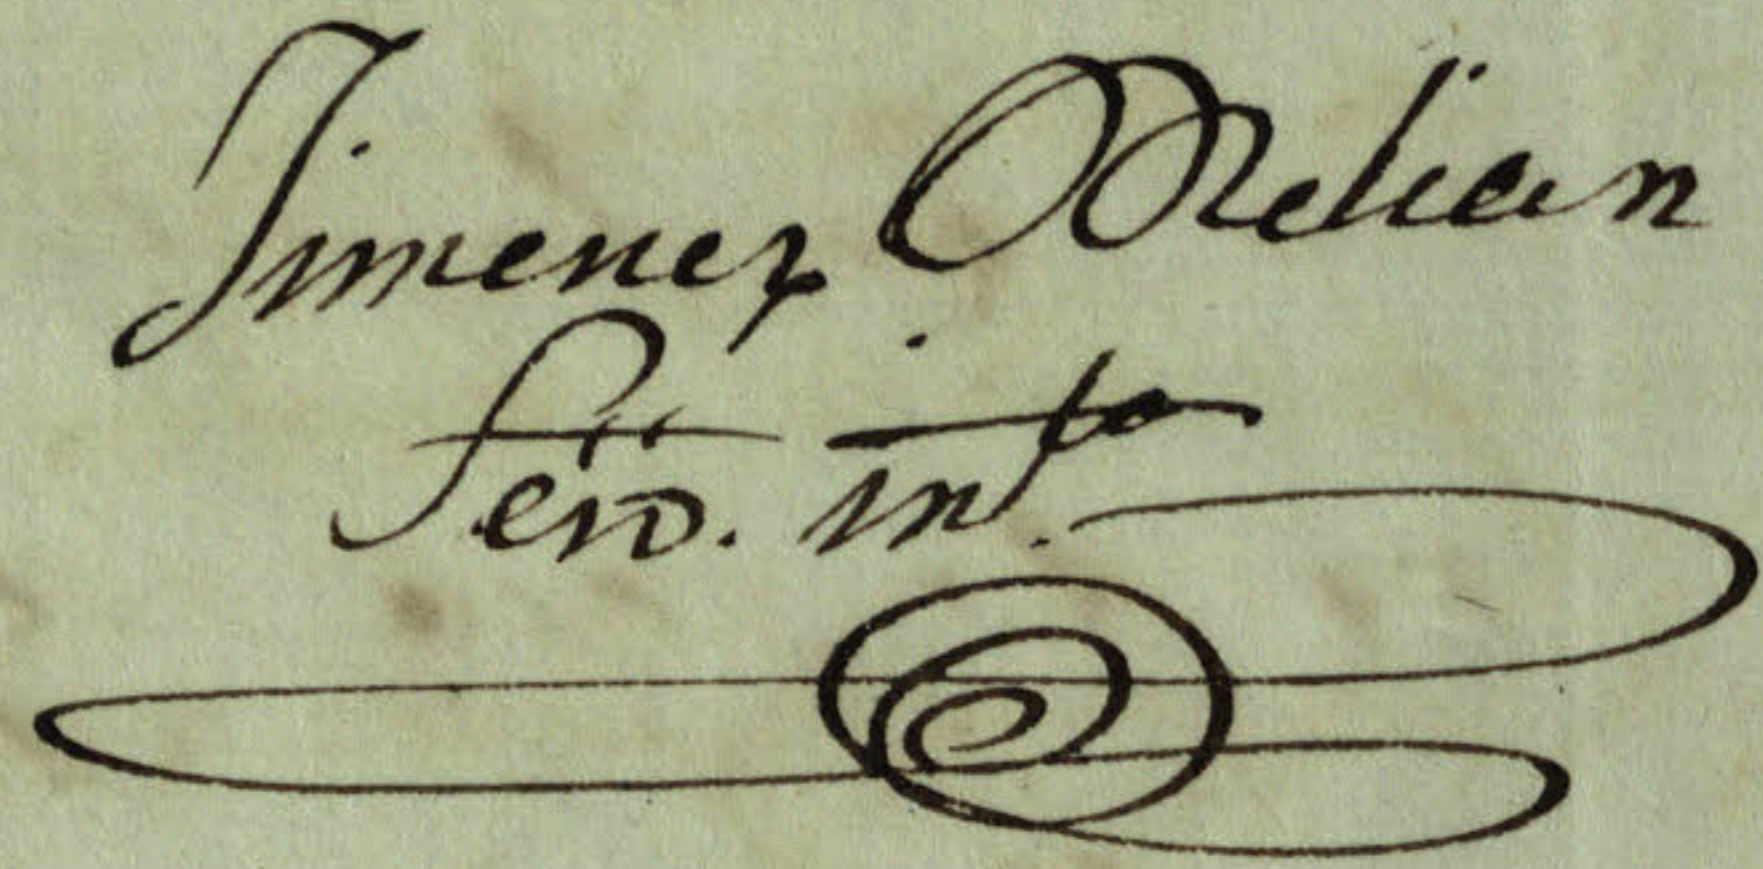 Jimenez Melian
Srio. intº.